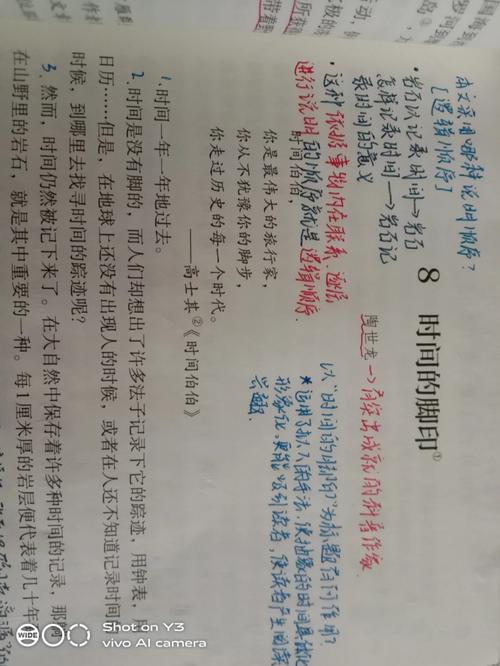 8 时间的脚印①
陶世龙→有突出成就的科普作家
本文采用哪种说明顺序？
[逻辑顺序]
·岩石从记录时间→岩石
怎样记录时间→岩石记
录时间的意义
·这种依据事物内在联系、逐层
进行说明的顺序就是逻辑顺序.
以“时间的脚印”为标题有何作用？
运用了拟人的手法，使抽象的时间具体化
形象化，更能吸引读者，使读者产生阅读
兴趣.
时间伯伯，
你是最伟大的旅行家，
你从不犹豫你的脚步，
你走过历史的每一个时代。
——高士其②《时间伯伯》
1.时间一年一年地过去。
2.时间是没有脚的，而人们却想出了许多法子记录下它的踪迹，用钟表，用
日历……但是，在地球上还没有出现人的时候，或者在人还不知道记录时间
时候，到哪里去找寻时间的踪迹呢？
3.然而，时间仍然被记下来了。在大自然中保存着许多种时间的记录，那
在山野里的岩石，就是其中重要的一种。每1厘米厚的岩层便代表着几十年
SHOT ON Y3
vivo AI camera
WIDE